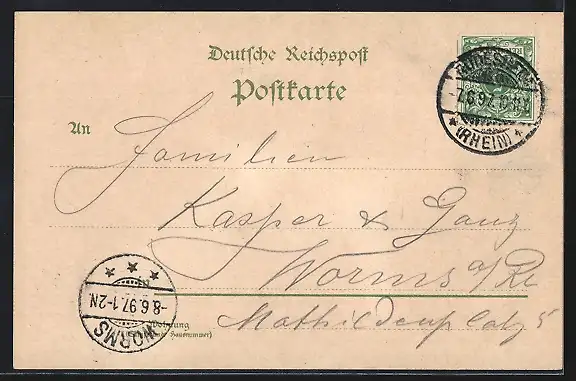 Deutsche Reichspost
Postkarte
RÜDESHEIM
7.6.97
* (RHEIN) *
An
Familien
Kasper & Ganz
Worms a/Rh
Mathildenplatz 5
Wohnung
8.6.97.1-2N
WORMS